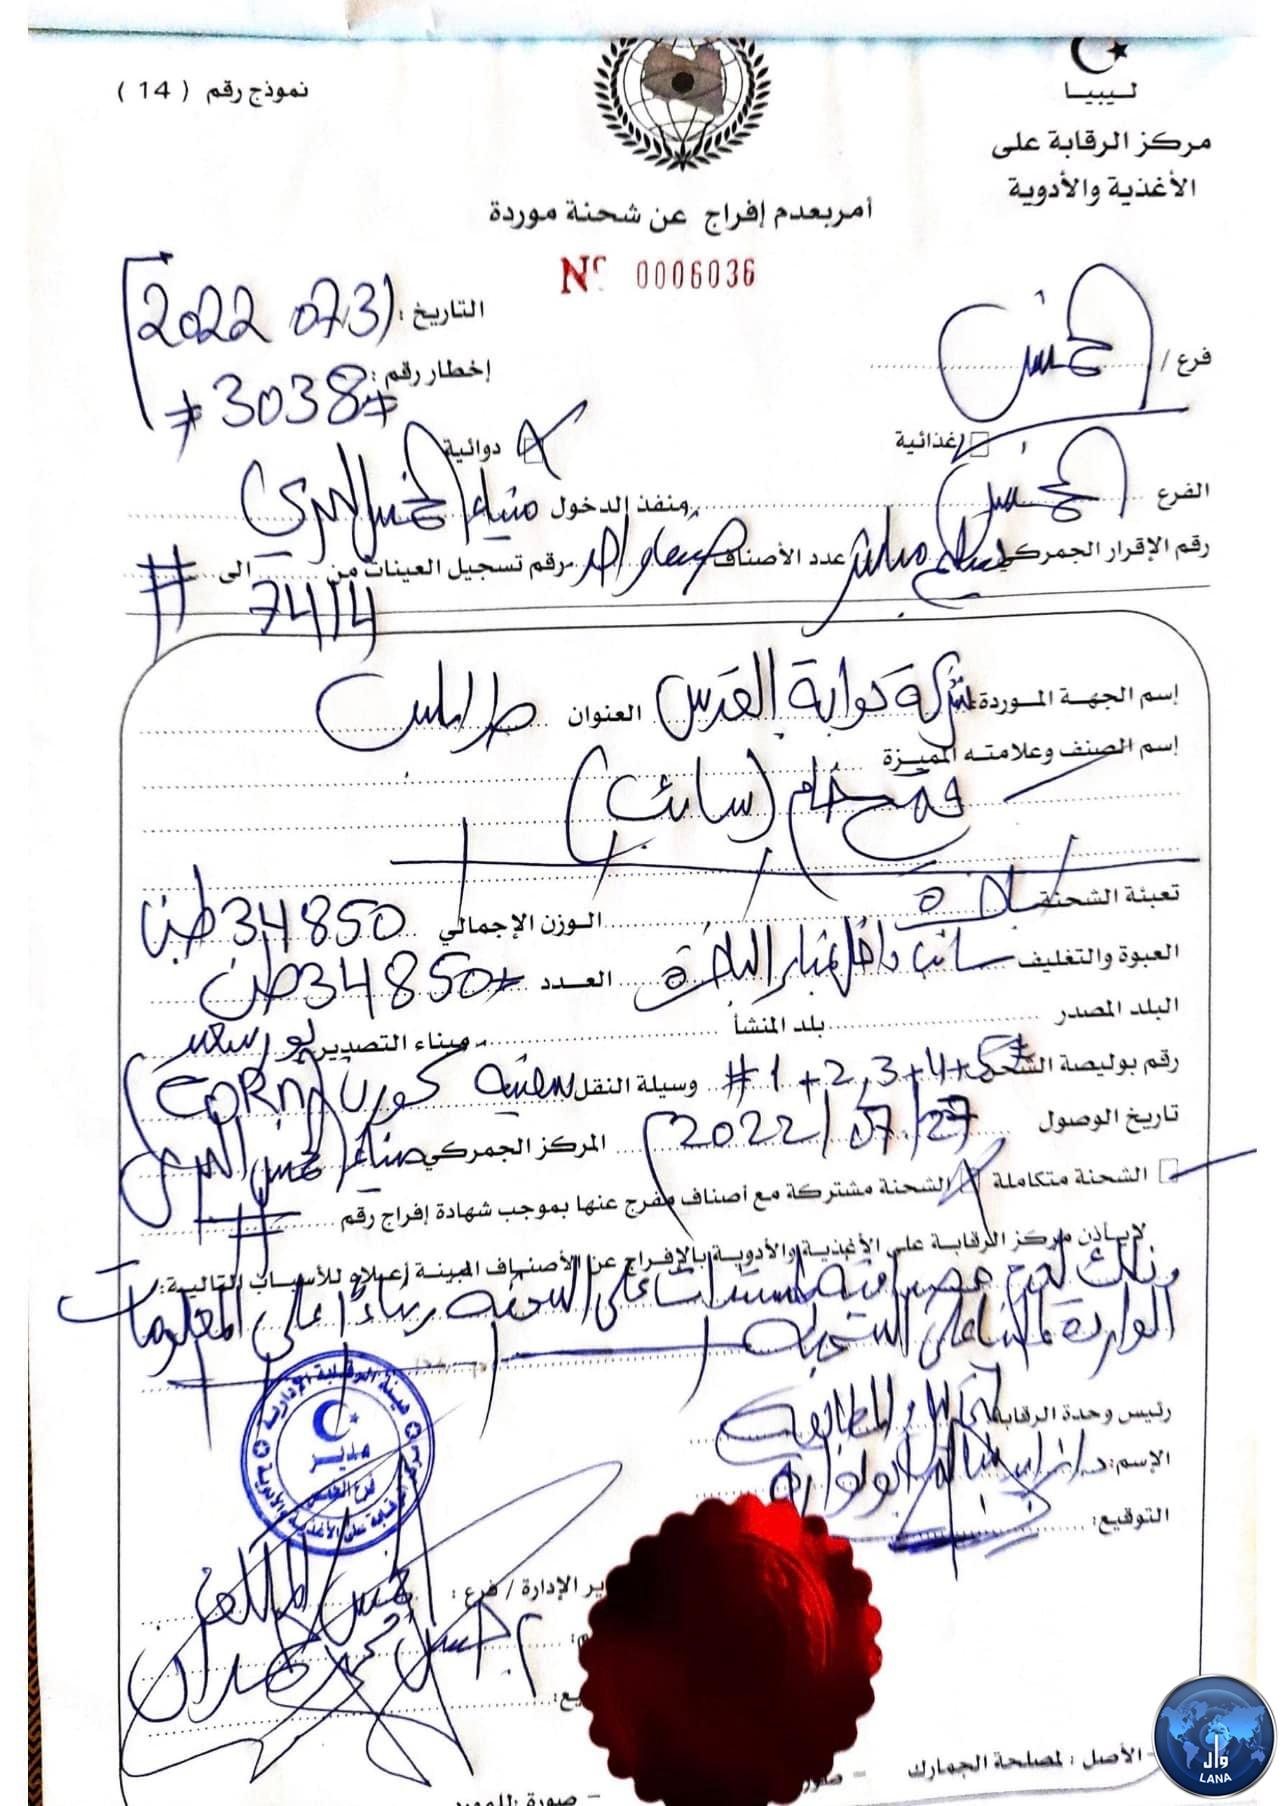 ليبيا
مركز الرقابة على
الأغذية والأدوية
نموذج رقم ( 14 )
أمر بعدم إفراج عن شحنة موردة
Nº 0006036
فرع / الخمس
التاريخ : 2022 07 31
إخطار رقم : #3038#
غذائية
دوائية
الفرع الخمس منفذ الدخول ميناء الخمس البحري
رقم الإقرار الجمركي عدد الأصناف صنف واحد رقم تسجيل العينات من 7414 الى #
إسم الجهة الموردة شركة بوابة القدس العنوان طرابلس
إسم الصنف وعلامته المميزة
قمح خام (سائب)
تعبئة الشحنة باخرة الوزن الإجمالي 34850 طن
العبوة والتغليف سائب داخل عنابر الباخرة العدد 34850 طن
البلد المصدر بلد المنشأ ميناء التصدير بورسعيد
رقم بوليصة الشحن #1+2,3+4+5# وسيلة النقل سفينة كورن (CORN
تاريخ الوصول 2022/07/27 المركز الجمركي ميناء الخمس البحري
الشحنة متكاملة الشحنة مشتركة مع أصناف مفرج عنها بموجب شهادة إفراج رقم #
لا يأذن مركز الرقابة على الأغذية والأدوية بالإفراج عن الأصناف المبينة أعلاه للأسباب التالية:
وذلك لعدم مصداقية المستندات على الشحنة بناءً على المعلومات
الواردة إلينا على الشحنة
رئيس وحدة الرقابة
الإسم:
التوقيع:
هيئة الرقابة الإدارية
مدير
فرع الخمس
ير الإدارة / فرع : الخمس المكلف
يع:
- الأصل : لمصلحة الجمارك
- صورة
- صورة للمورد
وال
LANA